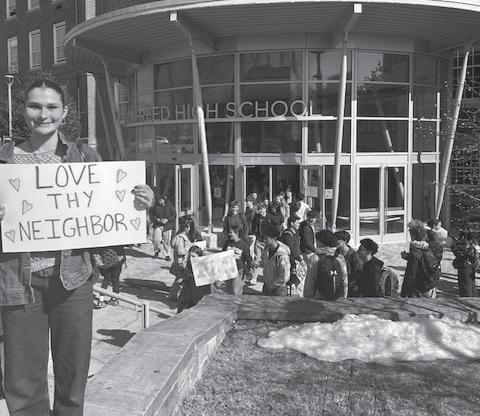 HIGH SCHOOL
LOVE
THY
NEIGHBOR